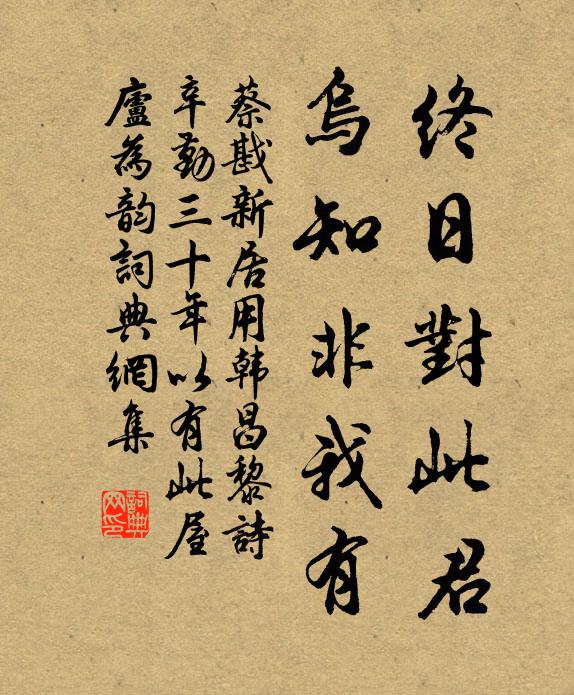 終日對此君
烏知非我有
蔡戡新居用韩昌黎詩
辛勤三十年以有此屋
廬為韵詞典網集
詞典网印